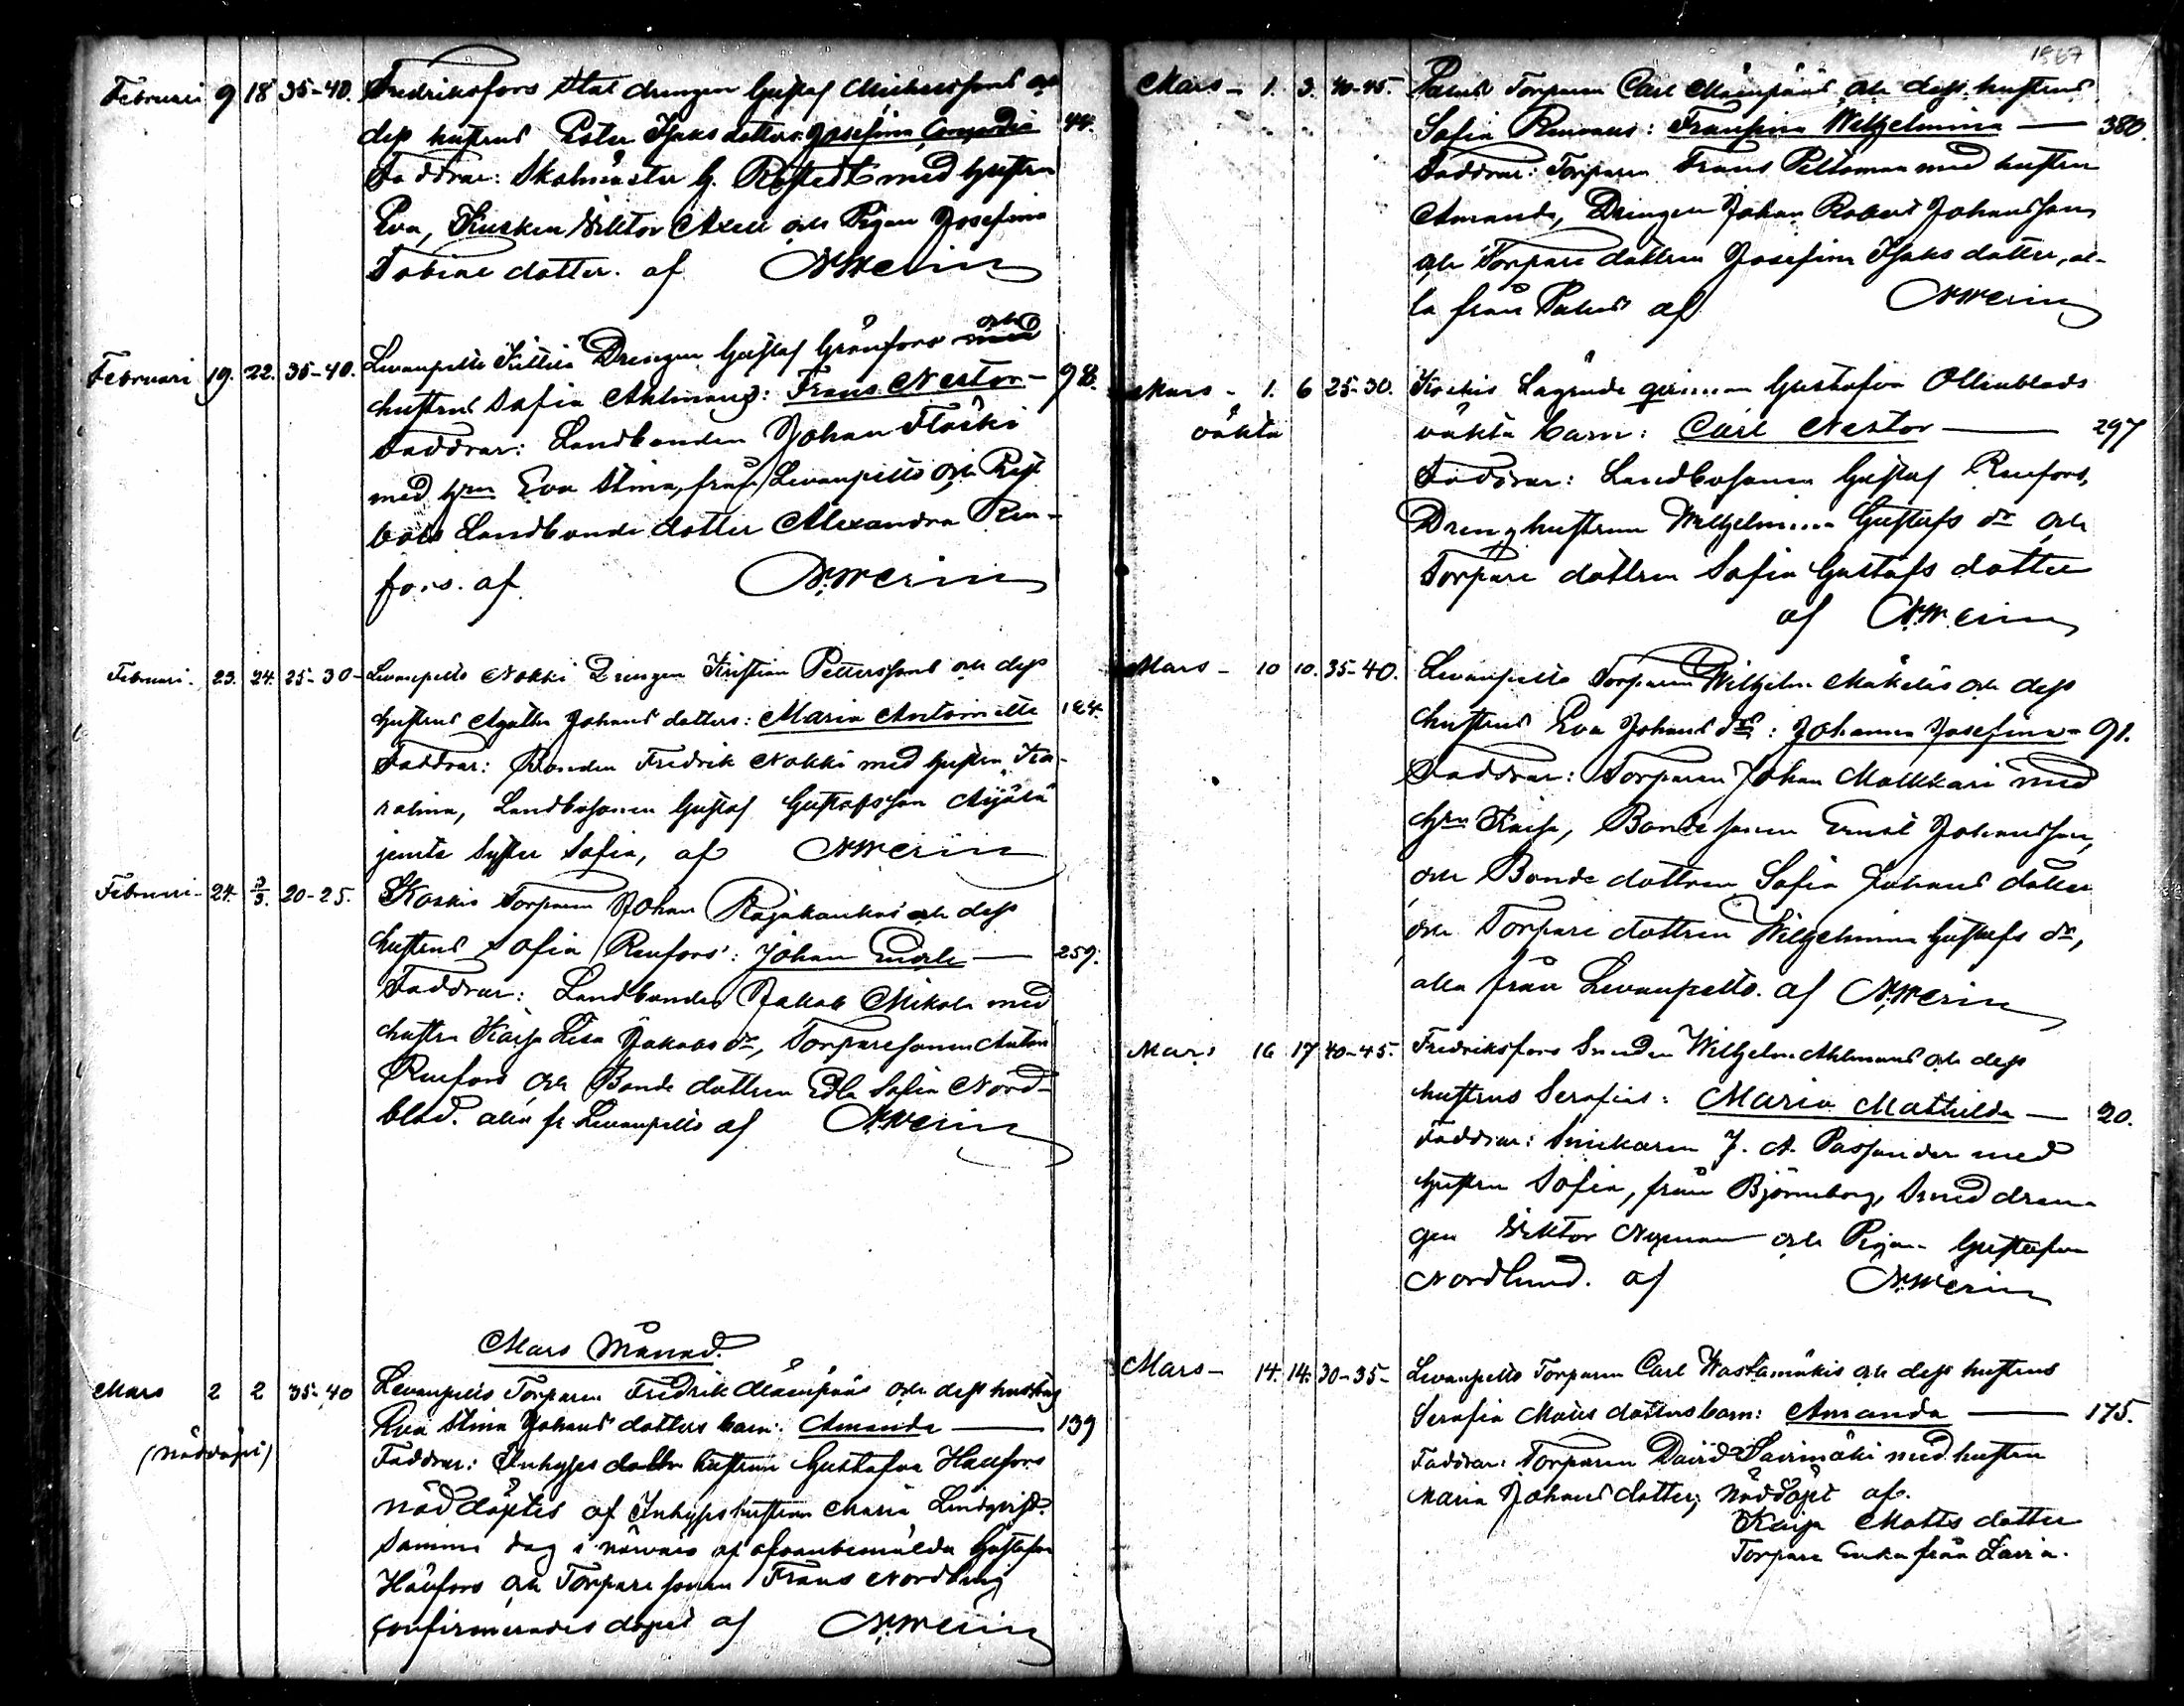 Februari 9 18 35-40. Fredriksfors Stat drengen Gustaf och
dess hustrus Ester Isaks dotters: Josefina 44.
Faddrar: Skolmäster G. med hustru
Eva, Kusken Viktor Axell och Pigan Josefina
Tobias dotter. af
Februari 19. 22. 35-40. Levanpelto Drengen Gustaf Granfors och
hustrus Sofia Ahlmans: Frans Nestor - 98.
Faddrar: Landbonden Johan Flaski
med hru Eva Stina, från Levanpelto och
Landbonde dotter Alexandra Ren-
fors. af
Februari. 23. 24. 25-30- Levanpelto Nokki Drengen Kristian Petterssons och dess
hustrus Agatha Johans dotters: Maria Antoinette 124.
Faddrar: Bonden Fredrik Nokki med hustru Ka-
rolina, Landbosonen Gustaf Gustafsson Äijälä
jemte Syster Sofia, af
Februari- 24. 3/3. 20-25. Koskis Torparen Johan och dess
hustrus Sofia Renfors': Johan 259.
Faddrar: Landbonden Jakob Mikola med
hustru Kaisa Lisa Jakobs dr, Torparesonen Anton
Renfors och Bonde dottren Edla Sofia Nord-
blad. alla fr Levanpelto af
Mars Månad.
Mars 2 2 35-40 Levanpelto Torparen Fredrik Mäenpääs och dess hustrus
(nöddöpt) Eva Stina Johans dotters barn: Amanda 139
Faddrar: Inhyses hustrun Gustafva Haufors
nöddöptes af Inhyses hustrun Maria Lindqvist.
Samma dag i närvaro af ofvanbemälda Gustafva
Haufors och Torpare sonen Frans Nordling
confirmerades dopet af
1867
Mars - 1. 3. 40-45. Torparen Carl Mäenpääs och dess hustrus
Sofia : Fransina Wilhelmina 380.
Faddrar: Torparen Frans Peltomaa med hustru
Amanda, Drengen Johan Robert Johansson
och Torpare dottren Josefina Isaks dotter, al-
la från af
Mars - 1. 6 25-30. Koskis Lägrade qvinnan Gustafva Ollonblads
oäkta oäkta barn: Carl Nestor 297
Faddrar: Landbosonen Gustaf Renfors,
Dreng hustrun Wilhelmina Gustafs dr och
Torpare dottren Sofia Gustafs dotter
af
Mars - 10 10. 35-40. Levanpelto Torparen Wilhelm Mäkeläs och dess
hustrus Eva Johans drs: Johanna Josefina - 91.
Faddrar: Torparen Johan Malkkari med
hru Kaisa, Bonde sonen Ernst Johansson,
och Bonde dottren Sofia Johans dotter
och Torpare dottren Wilhelmina Gustafs dr,
alla från Levanpelto. af
Mars 16 17 40-45. Fredriksfors Smeden Wilhelm Ahlmans och dess
hustrus Serafias: Maria Mathilda 20.
Faddrar: Snickaren J. A. med
hustru Sofia, från Björneborg, Smed dren-
gen Viktor Nyman och Pigan Gustafva
Nordlund. af
Mars - 14. 14. 30-35- Levanpelto Torparen Carl Wastamäkis och dess hustrus
Serafia Matts dotters barn: Amanda 175.
Faddrar: Torparen David Savimäki med hustru
Maria Johans dotter; Nöddöpt af.
Kaisa Matts dotter
Torpare Enka från Lavia.